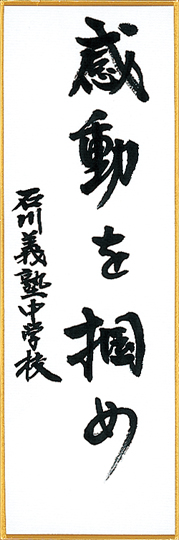 感動を掴め
石川義塾中学校